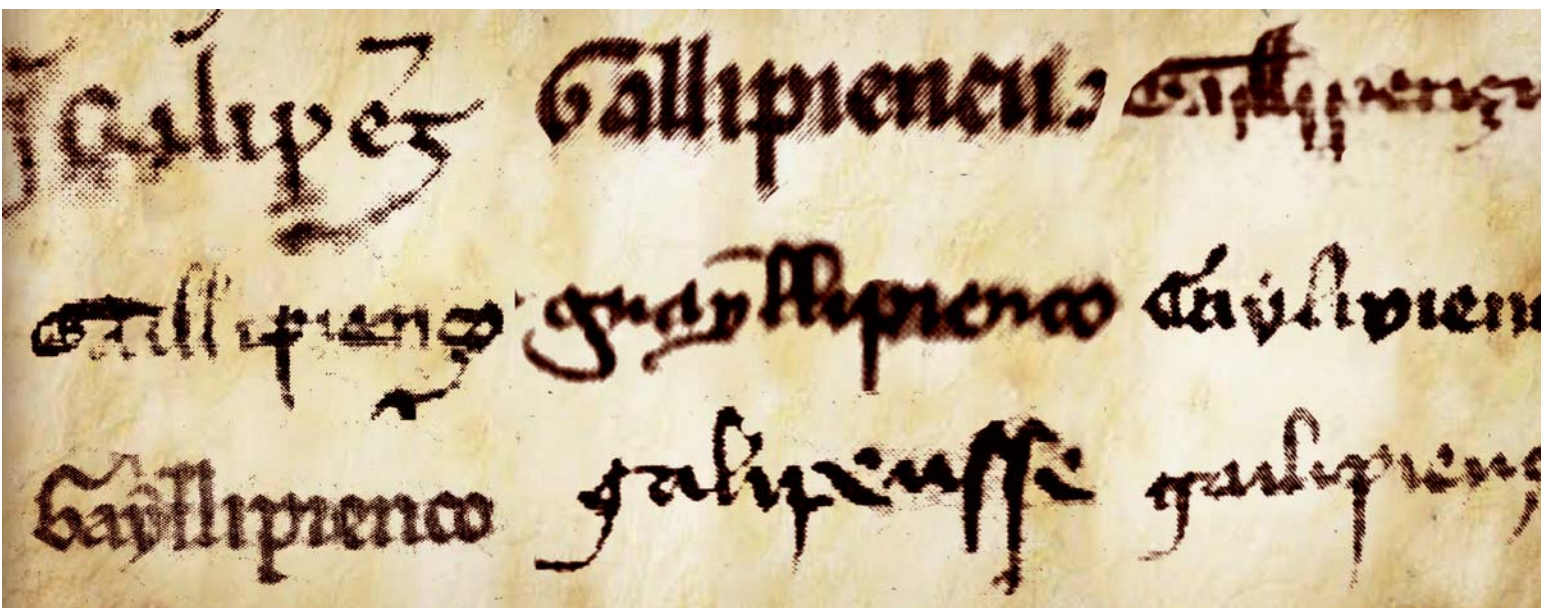 Galipez Gallipiencu
Gallipienço guayllipienco Gaylipien
Gayllipienco galipensse galipienç